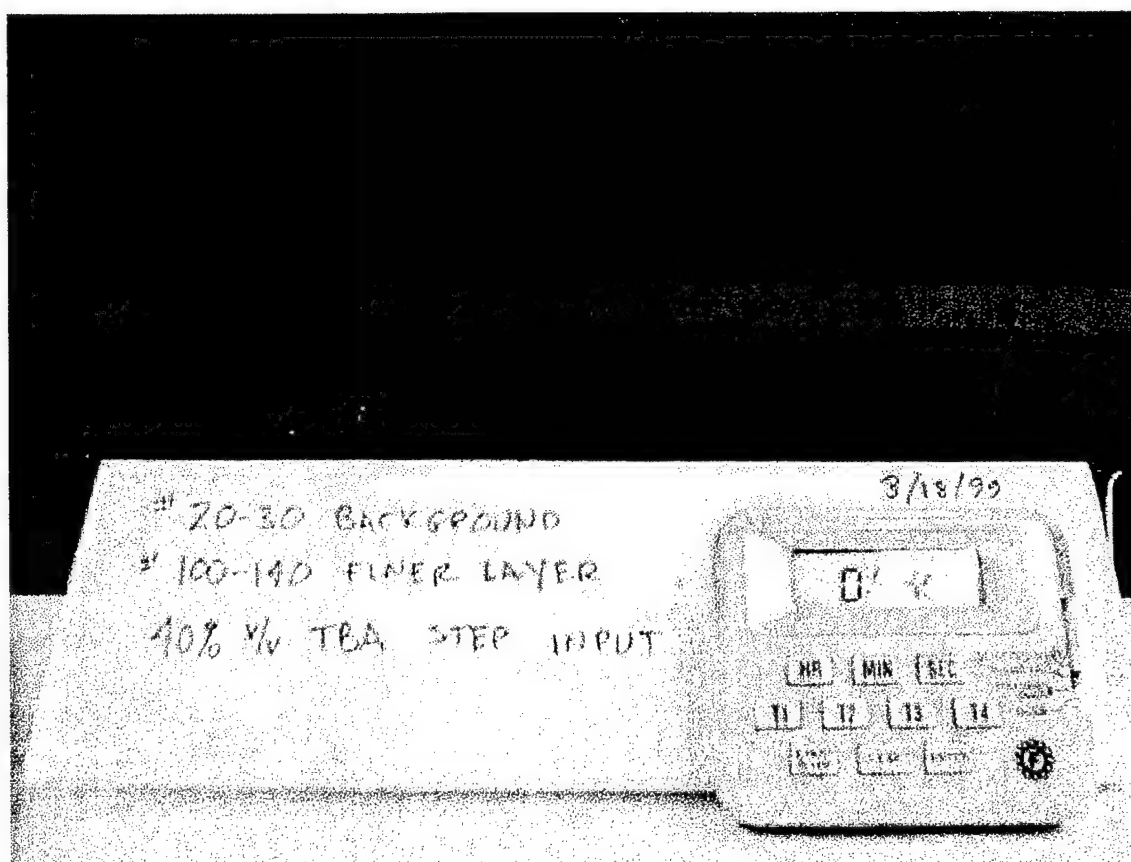 3/18/99
# 20-30 BACKGROUND
# 100-140 FINER LAYER
40% V/V TBA STEP INPUT
HR MIN SEC
T1 T2 T3 T4